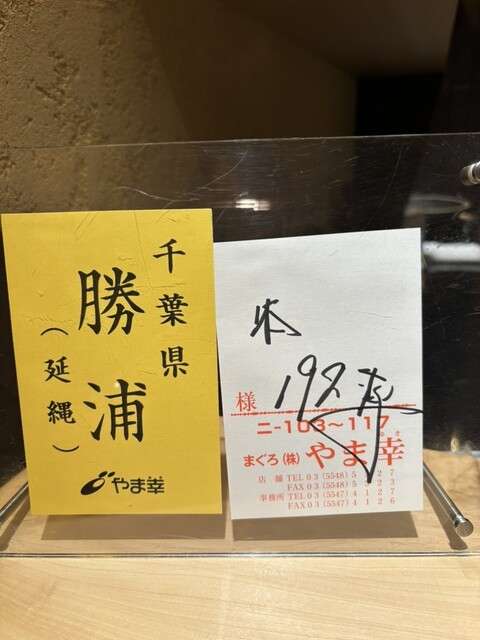 千葉県
勝浦
（延縄）
やま幸
様
ニ-103～117
まぐろ(株) やま幸
店舗 TEL 03 (5548) 5
FAX 03 (5548) 5
事務所 TEL 03 (5547) 4127
FAX 03 (5547) 4126